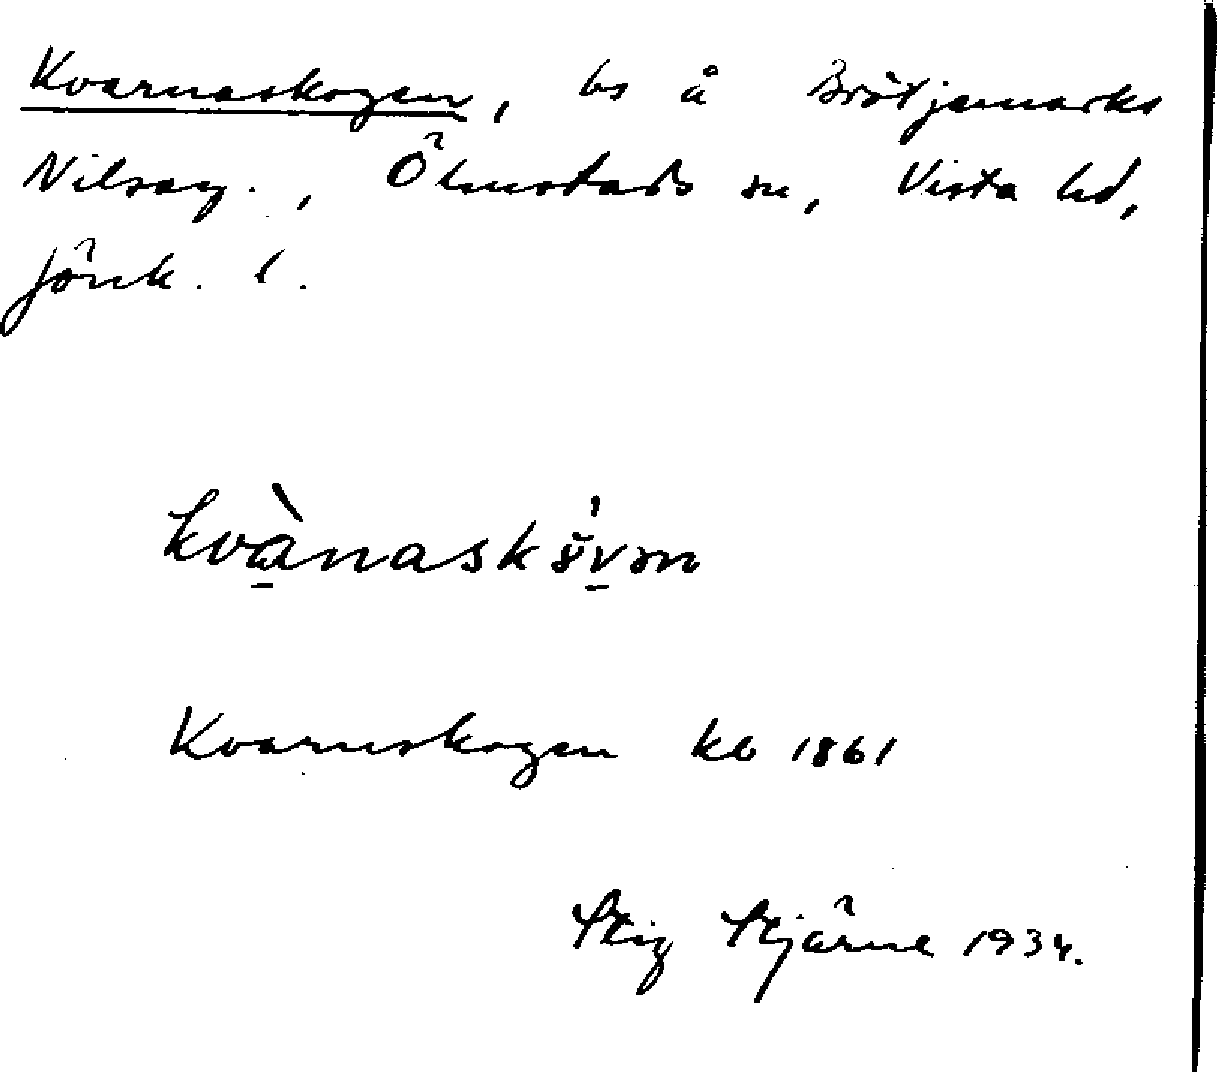 Kvarnaskogen, bs å Brötjemarks
Nilsag., Ölmstads sn, Vista hd,
Jönk. l.
kvànaskŏ́vən
Kvarnskogen kb 1861
Stig Stjärne 1934.